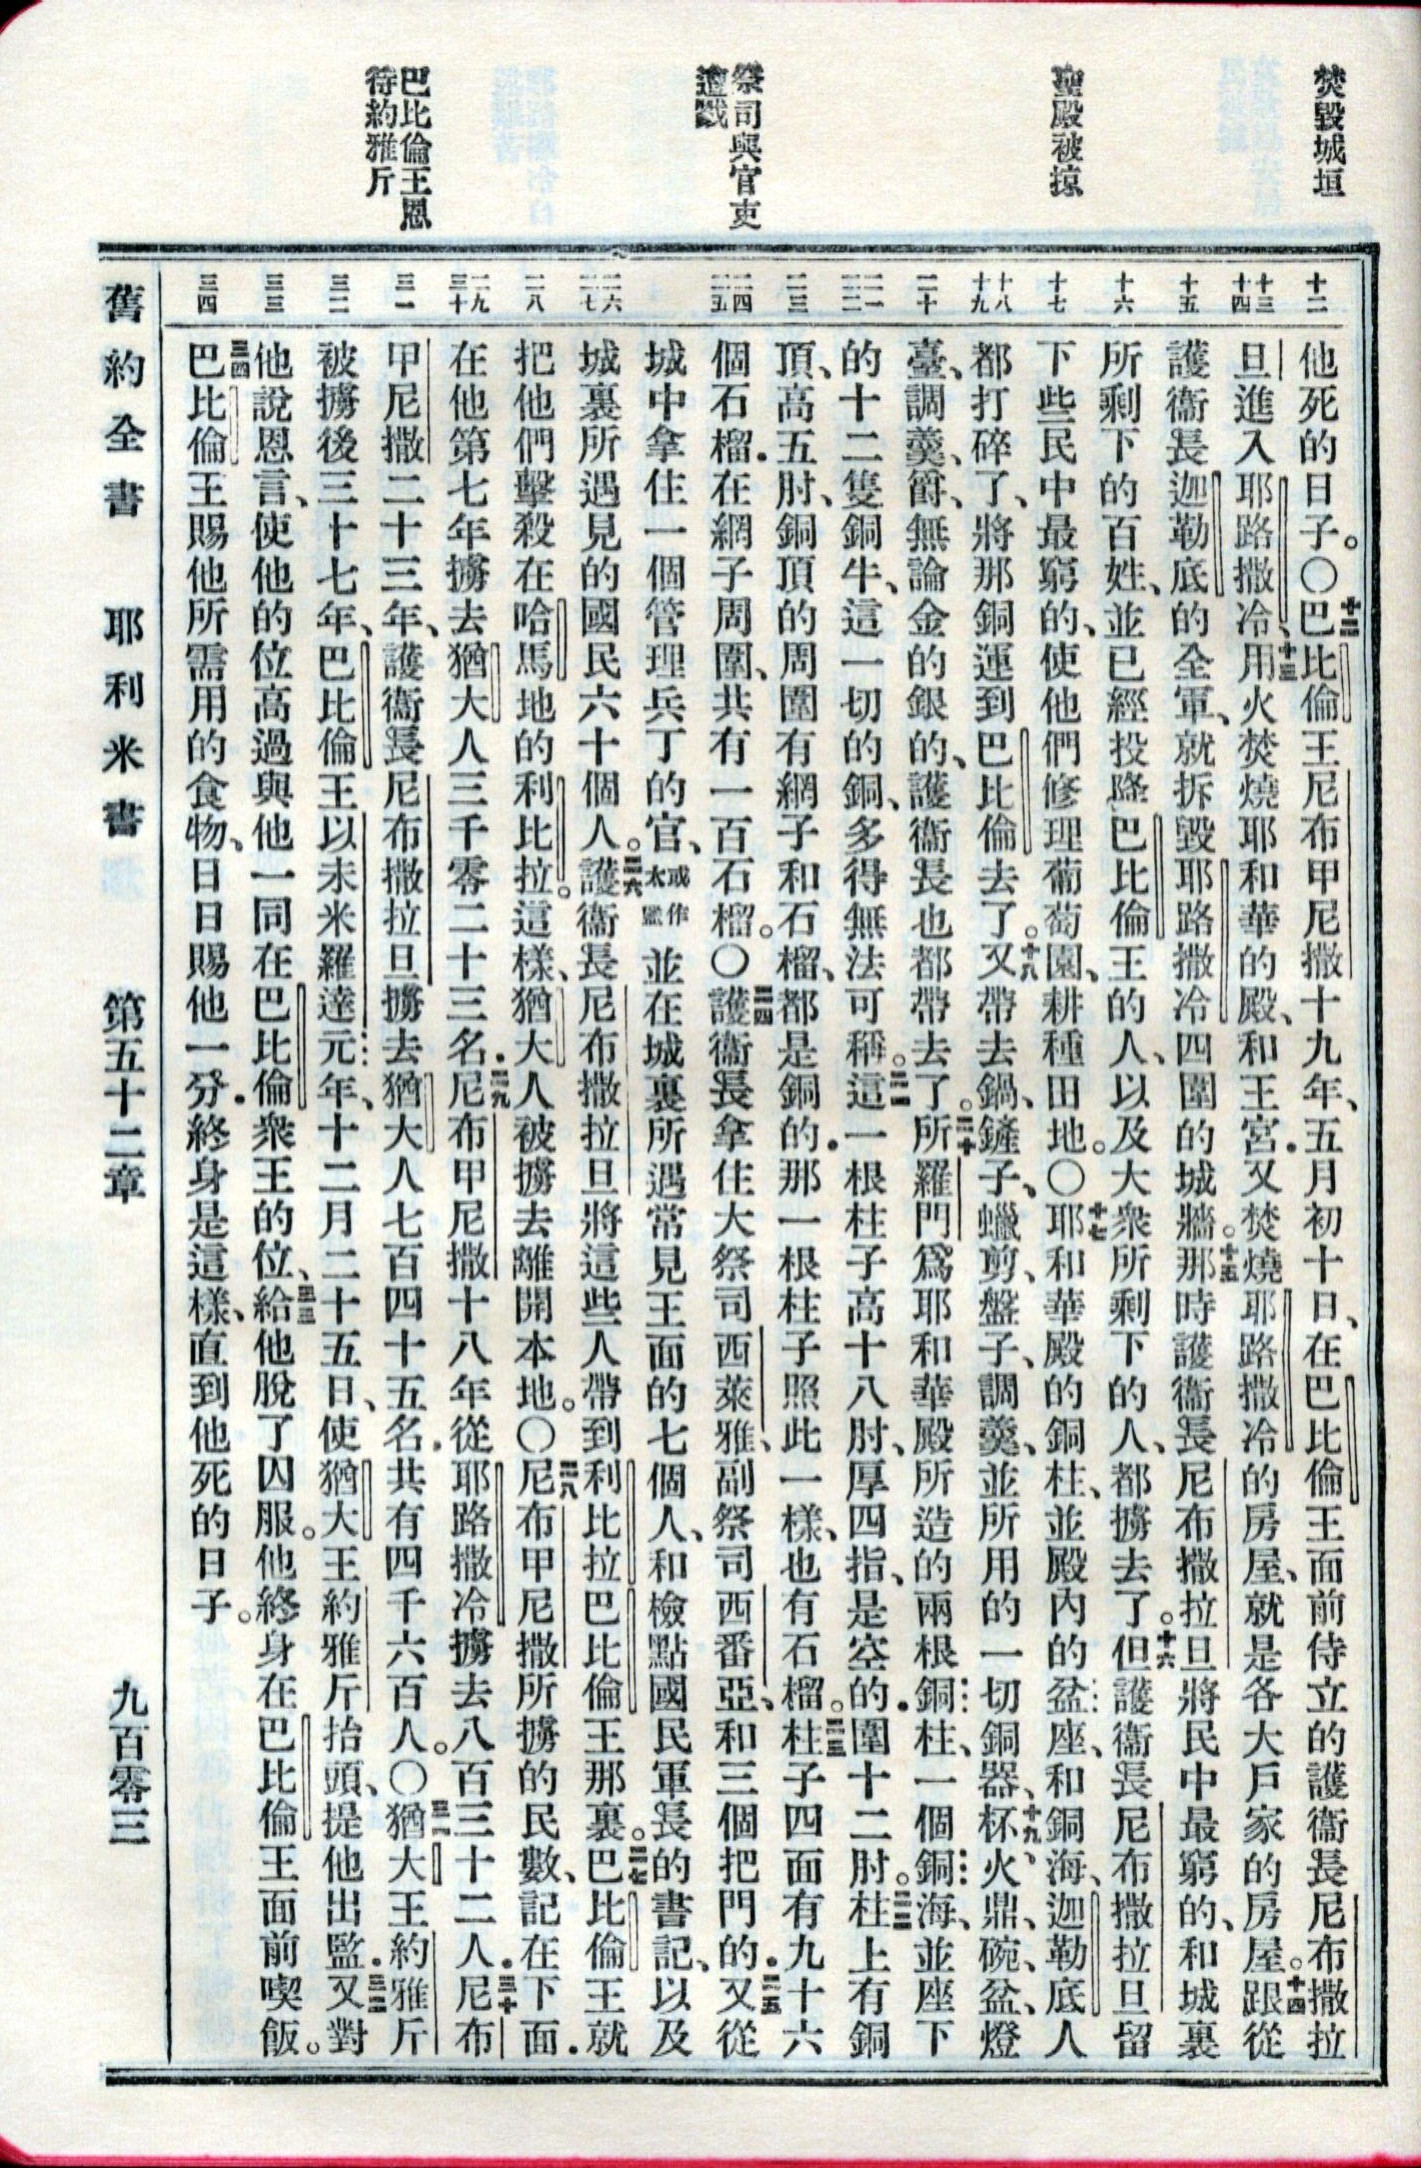 焚毀城垣
聖殿被掠
祭司與官吏
遭戮
巴比倫王恩
待約雅斤
十二
十三
十四
十五
十六
十七
十八
十九
二十
二一
二二
二三
二四
二五
二六
二七
二八
二九
三十
三一
三二
三三
三四
他死的日子。〇十二巴比倫王尼布甲尼撒十九年、五月初十日、在巴比倫王面前侍立的護衞長尼布撒拉
旦進入耶路撒冷、十三用火焚燒耶和華的殿、和王宮．又焚燒耶路撒冷的房屋、就是各大戶家的房屋。十四跟從
護衞長迦勒底的全軍、就拆毀耶路撒冷四圍的城牆。十五那時護衞長尼布撒拉旦將民中最窮的、和城裏
所剩下的百姓、並已經投降巴比倫王的人、以及大衆所剩下的人、都擄去了。十六但護衞長尼布撒拉旦留
下些民中最窮的、使他們修理葡萄園、耕種田地。〇十七耶和華殿的銅柱、並殿內的盆座、和銅海、迦勒底人
都打碎了、將那銅運到巴比倫去了。十八又帶去鍋、鏟子、蠟剪、盤子、調羹、並所用的一切銅器、十九杯、火鼎、碗、盆、燈
臺、調羹、爵、無論金的銀的、護衞長也都帶去了。二十所羅門爲耶和華殿所造的兩根銅柱、一個銅海、並座下
的十二隻銅牛、這一切的銅、多得無法可稱。二一這一根柱子高十八肘、厚四指、是空的．圍十二肘。二二柱上有銅
頂、高五肘、銅頂的周圍有網子和石榴、都是銅的．那一根柱子照此一樣、也有石榴。二三柱子四面有九十六
個石榴．在網子周圍、共有一百石榴。〇二四護衞長拿住大祭司西萊雅、副祭司西番亞、和三個把門的．二五又從
城中拿住一個管理兵丁的官、或作太監並在城裏所遇常見王面的七個人、和檢點國民軍長的書記、以及
城裏所遇見的國民六十個人。二六護衞長尼布撒拉旦將這些人帶到利比拉巴比倫王那裏。二七巴比倫王就
把他們擊殺在哈馬地的利比拉。這樣、猶大人被擄去離開本地。〇二八尼布甲尼撒所擄的民數、記在下面．
在他第七年擄去猶大人三千零二十三名．二九尼布甲尼撒十八年從耶路撒冷擄去八百三十二人．三十尼布
甲尼撒二十三年、護衞長尼布撒拉旦擄去猶大人七百四十五名．共有四千六百人。〇三一猶大王約雅斤
被擄後三十七年、巴比倫王以未米羅達元年、十二月二十五日、使猶大王約雅斤抬頭、提他出監．三二又對
他說恩言、使他的位高過與他一同在巴比倫衆王的位、三三給他脫了囚服。他終身在巴比倫王面前喫飯。
三四巴比倫王賜他所需用的食物、日日賜他一分．終身是這樣、直到他死的日子。
舊約全書　耶利米書　第五十二章　九百零三